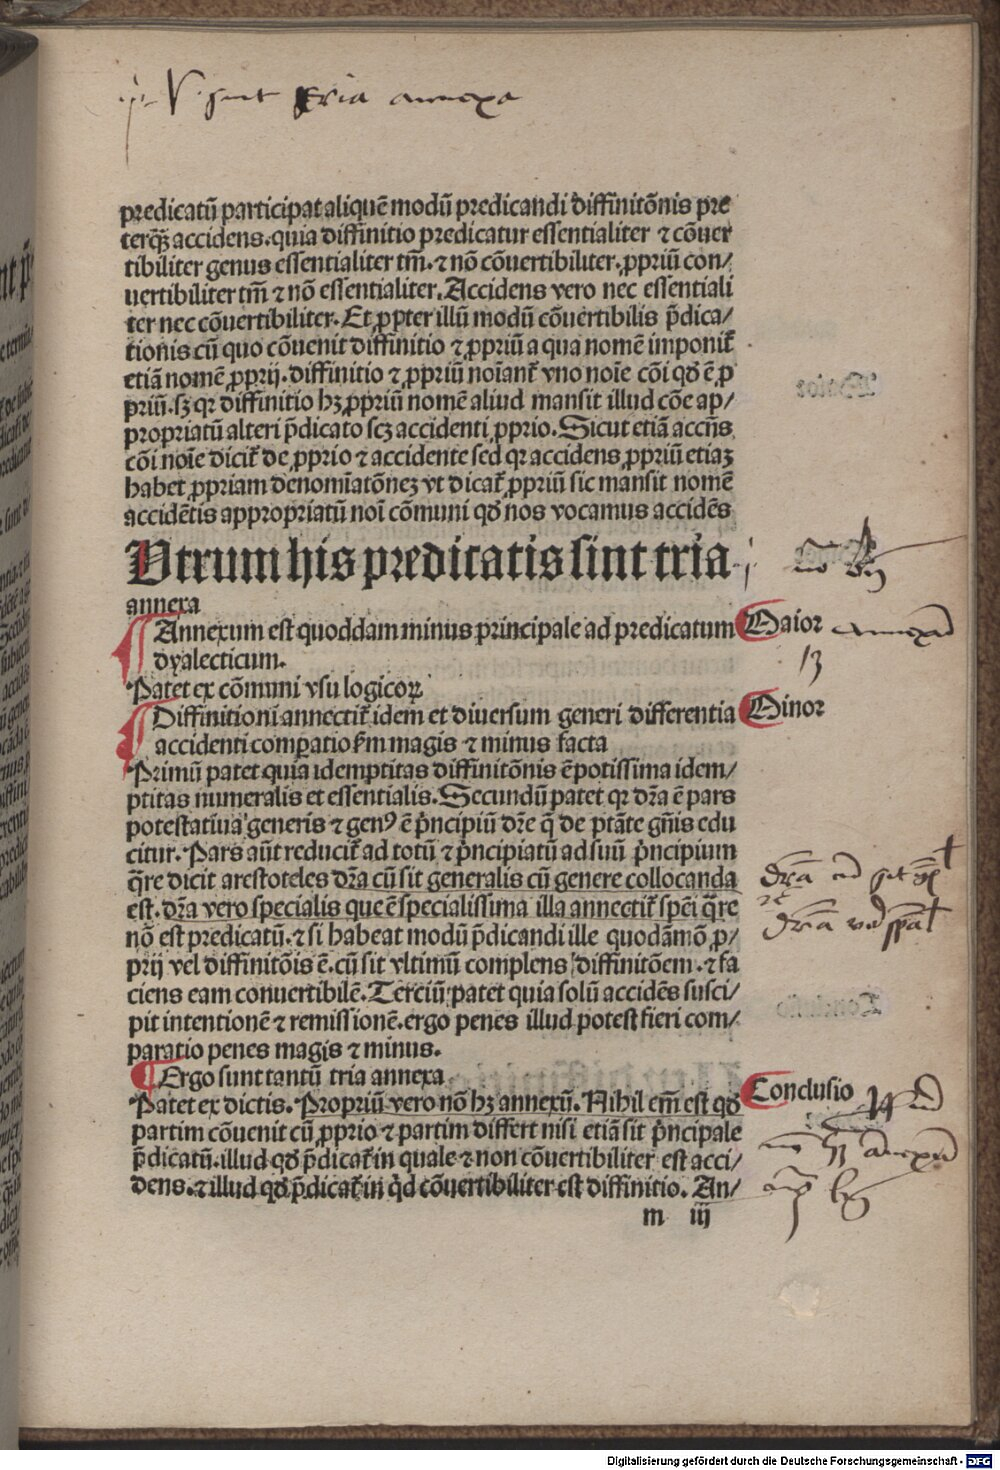 sunt tria annexa
predicatū participat aliquē modū predicandi diffinitōnis pre
terq̄ȝ accidens. quia diffinitio predicatur essentialiter ⁊ cōuer
tibiliter genus essentialiter tm̄. ⁊ nō cōuertibiliter. ꝓpriū con/
uertibiliter tm̄ ⁊ nō essentialiter. Accidens vero nec essentiali
ter nec cōuertibiliter. Et ꝓpter illū modū cōuertibilis p̄dica/
tionis cū quo cōuenit diffinitio ⁊ ꝓpriū a qua nomē imponit̄
etiā nomē ꝓprij. diffinitio ⁊ ꝓpriū noīant̄ vno noīe cōi qd̄ ē ꝓ
priū. sȝ qꝛ diffinitio hȝ ꝓpriū nomē aliud mansit illud cōe ap/
propriatū alteri p̄dicato scȝ accidenti ꝓprio. Sicut etiā accn̄s
cōi noīe dicit̄ de ꝓprio ⁊ accidente sed qꝛ accidens ꝓpriū etiaȝ
habet ꝓpriam denomīatōneȝ vt dicat̄ ꝓpriū sic mansit nomē
accidētis appropriatū noī cōmuni qd̄ nos vocamus accidēs
Utrum his predicatis sint tria
annexa
Annexum est quoddam minus principale ad predicatum Maior
dyalecticum.
Patet ex cōmuni vsu logicoꝝ
Diffinitioni annectit̄ idem et diuersum generi differentia Minor
accidenti comꝑatio ẜm magis ⁊ minus facta
Primū patet quia idemptitas diffinitōnis ē potissima idem/
ptitas numeralis et essentialis. Secundū patet qꝛ dr̄a ē pars
potestatiua generis ⁊ genꝰ ē p̄ncipiū dr̄e q̄ de ptāte gn̄is edu
citur. Pars aūt reducit̄ ad totū ⁊ p̄ncipiatū ad suū p̄ncipium
q̄re dicit arestoteles dr̄a cū sit generalis cū genere collocanda
est. dr̄a vero specialis que ē specialissima illa annectit̄ spēi q̄re
nō est predicatū. ⁊ si habeat modū p̄dicandi ille quodāmō ꝓ/
prij vel diffinitōis ē. cū sit vltimū complens diffinitōem. ⁊ fa
ciens eam conuertibilē. Terciū patet quia solū accidēs susci/
pit intentionē ⁊ remissionē. ergo penes illud potest fieri com/
paratio penes magis ⁊ minus.
Ergo sunt tantū tria annexa Conclusio
Patet ex dictis. Propriū vero nō hȝ annexū. Nihil em̄ est qd̄
partim cōuenit cū ꝓprio ⁊ partim differt nisi etiā sit p̄ncipale
p̄dicatū. illud qd̄ p̄dicat̄ in quale ⁊ non cōuertibiliter est acci/
dens. ⁊ illud qd̄ p̄dicat̄ in q̄d cōuertibiliter est diffinitio. An/
m iij
Digitalisierung gefördert durch die Deutsche Forschungsgemeinschaft - DFG